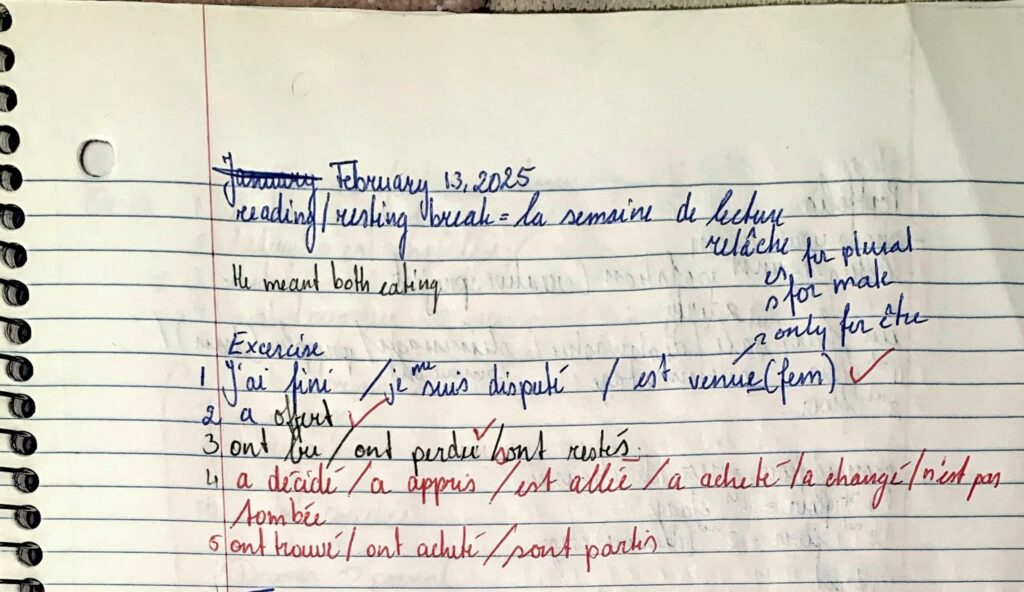 January February 13, 2025
reading/resting break = la semaine de lecture
relâche
es for plural
s for male
He meant both eating
only for être
Excercise
1 J'ai fini / je me suis disputé / est venue (fem) ✓
2 a offert ✓
3 ont bu / ont perdu ✓ / sont restés.
4 a décidé / a appris / est allée / a acheté / a changé / n'est pas
tombée
5 ont trouvé / ont acheté / sont partis